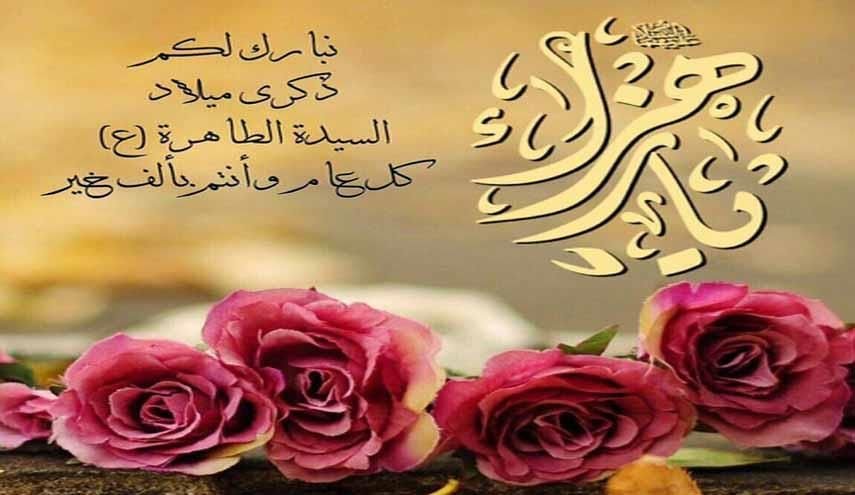 نبارك لكم
ذكرى ميلاد
السيدة الطاهرة (ع)
كل عام و أنتم بألف خير
يا زهراء